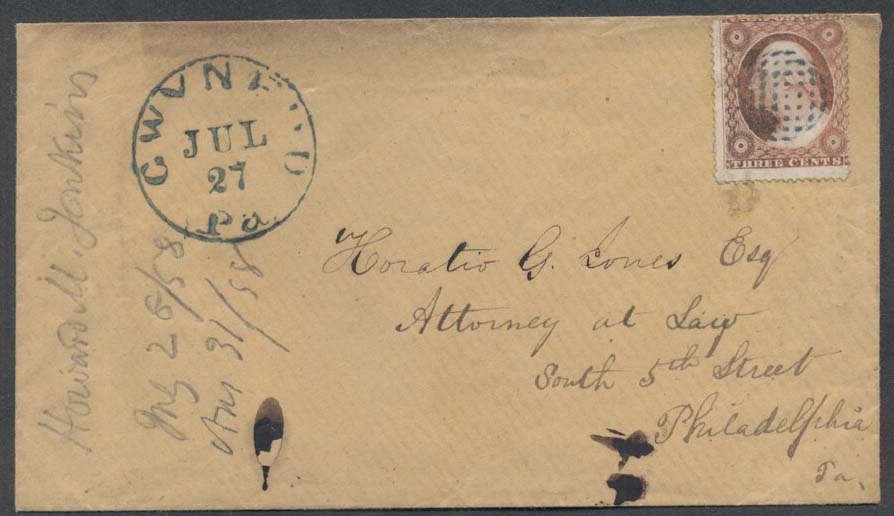 Howard M. Jenkins
GWYNEDD
JUL
27
Pa.
July 26/58
Ans 31/58
THREE CENTS
Horatio G. Jones Esq
Attorney at Law
South 5th Street
Philadelphia
Pa.